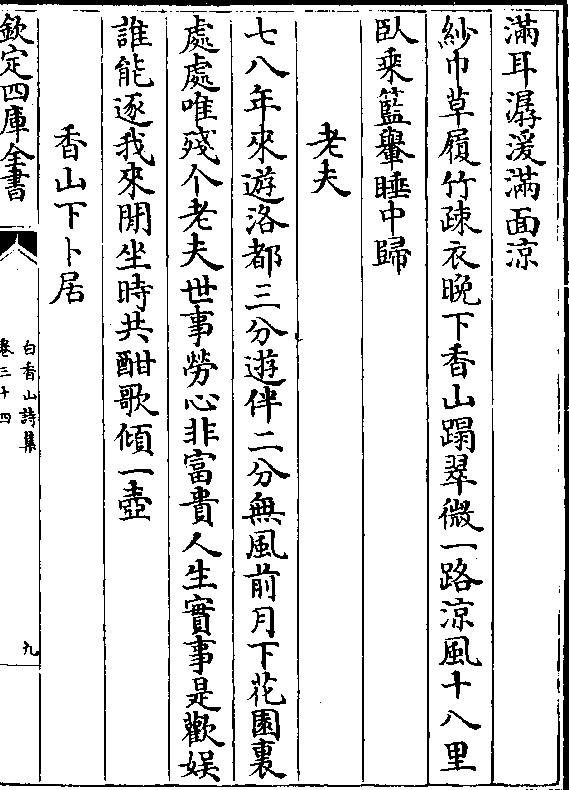 滿耳潺湲滿面涼
紗巾草履竹疎衣晚下香山蹋翠微一路涼風十八里
臥乘籃轝睡中歸
老夫
七八年來遊洛都三分遊伴二分無風前月下花園裏
處處唯殘个老夫世事勞心非富貴人生實事是歡娛
誰能逐我來閒坐時共酣歌傾一壺
香山下卜居
欽定四庫全書
白香山詩集
卷三十四
九